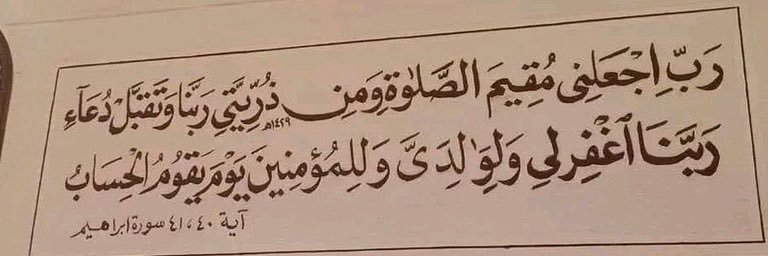 رَبِّ اجْعَلْنِى مُقِيمَ الصَّلَوٰةِ وَمِن ذُرِّيَّتِى رَبَّنَا وَتَقَبَّلْ دُعَآءِ
١٤٢٩هـ
رَبَّنَا ٱغْفِرْ لِى وَلِوَٰلِدَىَّ وَلِلْمُؤْمِنِينَ يَوْمَ يَقُومُ الْحِسَابُ
آية ٤٠، ٤١ سورة ابراهيم